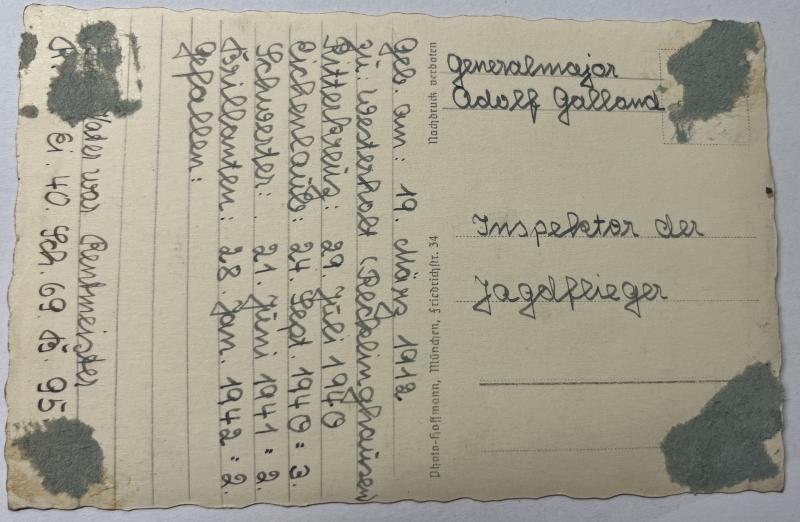 Generalmajor
Adolf Galland
Inspekteur der
Jagdflieger
Nachdruck verboten
Photo-Hoffmann, München, Friedrichstr. 34
Geb. am: 19. März 1912
zu: Westerholt (Recklinghausen
Ritterkreuz: 29. Juli 1940
Eichenlaub: 24. Sept. 1940 = 3.
Schwerter: 21. Juni 1941 = 2.
Brillanten: 28. Jan. 1942 = 2.
Gefallen:
Vater war Rentmeister
Ei. 40. Sch. 69. B. 95.